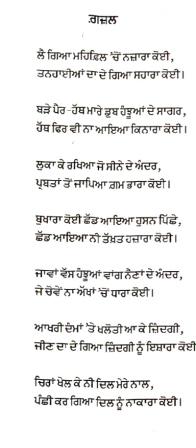 ਗ਼ਜ਼ਲ
ਲੈ ਗਿਆ ਮਹਿਫ਼ਿਲ 'ਚੋਂ ਨਜ਼ਾਰਾ ਕੋਈ,
ਤਨਹਾਈਆਂ ਦਾ ਦੇ ਗਿਆ ਸਹਾਰਾ ਕੋਈ।
ਬੜੇ ਪੈਰ-ਹੱਥ ਮਾਰੇ ਡੁਬ ਹੰਝੂਆਂ ਦੇ ਸਾਗਰ,
ਹੱਥ ਫਿਰ ਵੀ ਨਾ ਆਇਆ ਕਿਨਾਰਾ ਕੋਈ।
ਲੁਕਾ ਕੇ ਰਖਿਆ ਜੋ ਸੀਨੇ ਦੇ ਅੰਦਰ,
ਪ੍ਰਬਤਾਂ ਤੋਂ ਜਾਪਿਆ ਗ਼ਮ ਭਾਰਾ ਕੋਈ।
ਬੁਖਾਰਾ ਕੋਈ ਛੱਡ ਆਇਆ ਹੁਸਨ ਪਿੱਛੇ,
ਛੱਡ ਆਇਆ ਨੀ ਤੱਖ਼ਤ ਹਜ਼ਾਰਾ ਕੋਈ।
ਜਾਵਾਂ ਵੱਸ ਹੰਝੂਆਂ ਵਾਂਗ ਨੈਣਾਂ ਦੇ ਅੰਦਰ,
ਜੇ ਚੋਵੇਂ ਨਾ ਅੱਖਾਂ 'ਚੋਂ ਧਾਰਾ ਕੋਈ।
ਆਖਰੀ ਦੰਮਾਂ 'ਤੇ ਖਲੋਤੀ ਆ ਕੇ ਜ਼ਿੰਦਗੀ,
ਜੀਣ ਦਾ ਦੇ ਗਿਆ ਜ਼ਿੰਦਗੀ ਨੂੰ ਇਸ਼ਾਰਾ ਕੋਈ
ਚਿਰਾਂ ਖੇਲ ਕੇ ਨੀ ਦਿਲ ਮੇਰੇ ਨਾਲ,
ਪੰਛੀ ਕਰ ਗਿਆ ਦਿਲ ਨੂੰ ਨਾਕਾਰਾ ਕੋਈ।